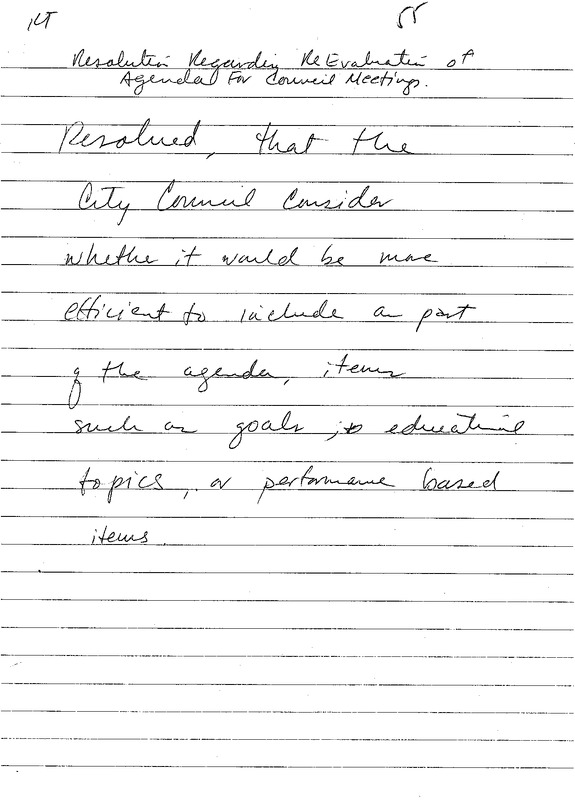 KT 55
Resolution Regarding ReEvaluation of
Agendas For Council Meetings.
Resolved, that the
City Council Consider
whether it would be more
efficient to include as part
of the agenda, items
such as goals, educational
topics, or performance based
items.